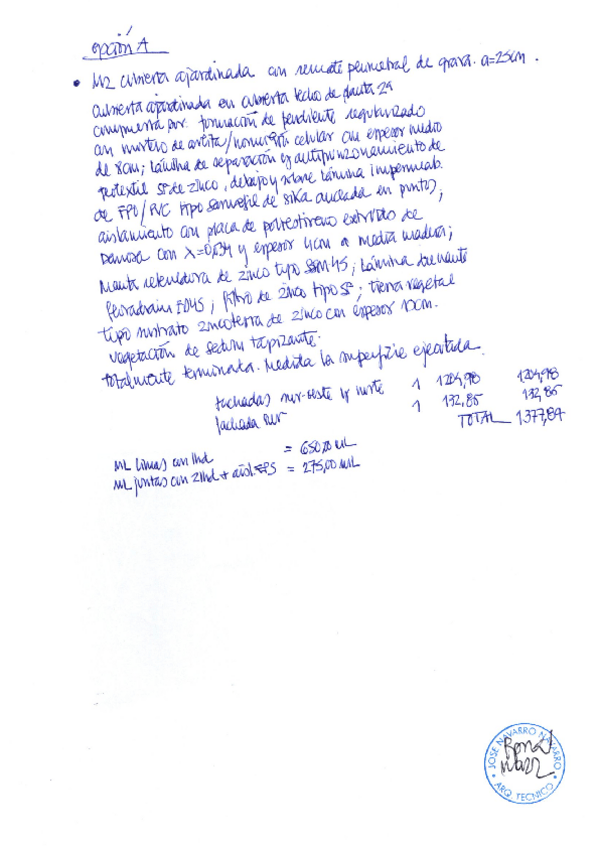 opción A
• M2 cubierta ajardinada con remate perimetral de grava. a=25cm.
cubierta ajardinada en cubierta techo de planta 2ª
compuesta por: formación de pendiente regularizado
con mortero de arlita/hormigón celular con espesor medio
de 8cm; lámina de separación y antipunzonamiento de
geotextil SP de zinco, debajo y sobre lámina impermeab.
de FPO/PVC tipo Sarnafil de Sika anclada en puntos;
aislamiento con placa de poliestireno extruido de
Danosa con λ=0,034 y espesor 4cm a media madera;
Manta retenedora de zinco tipo SSM-45; Lámina drenante
floradrain FD45; filtro de zinco tipo SF; tierra vegetal
tipo sustrato zincoterra de zinco con espesor 10cm.
vegetación de sedum tapizante.
Totalmente terminada. Medida la superficie ejecutada.
fachadas sur-oeste y norte 1 1204,98 1204,98
fachada sur 1 132,85 132,85
TOTAL 1377,84
ML limas con lhd = 650,00 ML
ML juntas con 2lhd + aisl. EPS = 275,00 ML
JOSE NAVARRO NAVARRO
ARQ. TECNICO